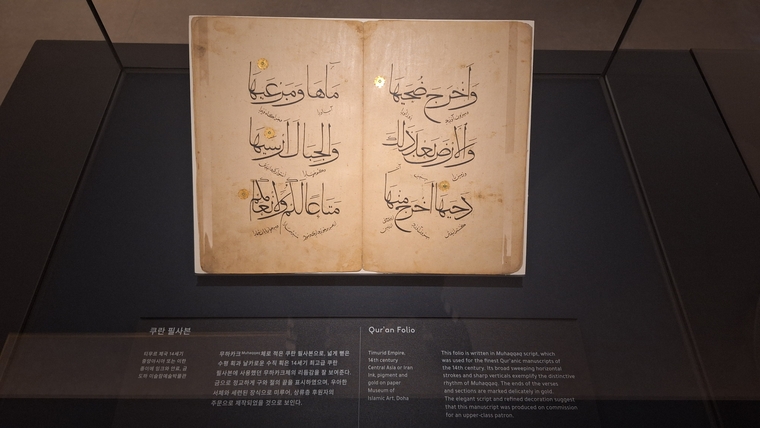 وَأَخرَجَ ضُحَيهَا
وَالأَرضَ بَعدَ ذَلِكَ
دَحَيهَا أَخرَجَ مِنهَا
مَاهَا وَمَرعَيهَا
وَالجِبَالَ أَرسَيهَا
مَتَاعًا لَكُم وَلِأَنعَامِكُم
쿠란 필사본
티무르 제국 14세기
중앙아시아 또는 이란
종이에 잉크와 안료, 금
도하 이슬람예술박물관
무하카크Muhaqqaq체로 적은 쿠란 필사본으로, 넓게 뻗은
수평 획과 날카로운 수직 획은 14세기 최고급 쿠란
필사본에 사용했던 무하카크체의 리듬감을 잘 보여준다.
금으로 정교하게 구와 절의 끝을 표시하였으며, 우아한
서체와 세련된 장식으로 미루어, 상류층 후원자의
주문으로 제작되었을 것으로 보인다.
Qur'an Folio
Timurid Empire,
14th century
Central Asia or Iran
Ink, pigment and
gold on paper
Museum of
Islamic Art, Doha
This folio is written in Muhaqqaq script, which
was used for the finest Qur'anic manuscripts of
the 14th century. Its broad sweeping horizontal
strokes and sharp verticals exemplify the distinctive
rhythm of Muhaqqaq. The ends of the verses
and sections are marked delicately in gold.
The elegant script and refined decoration suggest
that this manuscript was produced on commission
for an upper-class patron.